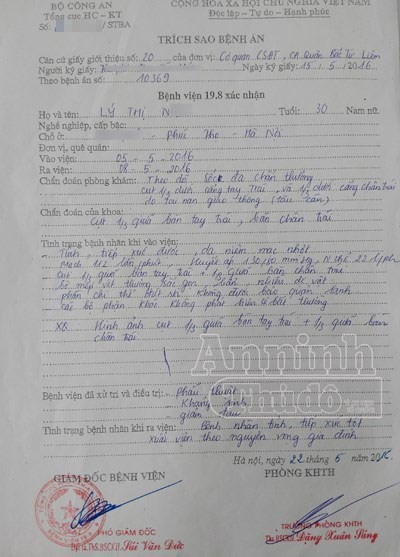 BỘ CÔNG AN
Tổng cục HC - KT
Số: /STBA
CỘNG HÒA XÃ HỘI CHỦ NGHĨA VIỆT NAM
Độc lập - Tự do - Hạnh phúc
TRÍCH SAO BỆNH ÁN
Căn cứ giấy giới thiệu số: 20 của đơn vị: Cơ quan CSĐT, CA Quận Bắc Từ Liêm
Người ký giấy: Ngày ký giấy: 15/5/2016
Theo bệnh án số: 10369
Bệnh viện 19.8 xác nhận
Họ và tên: LÝ THỊ N Tuổi: 30 Nam nữ.
Nghề nghiệp, cấp bậc:
Chỗ ở: Phúc Thọ - Hà Nội
Đơn vị, quê quán:
Vào viện: 05-5-2016
Ra viện: 08-5-2016
Chẩn đoán phòng khám: Theo dõi sốc đa chấn thương
cụt 1/3 dưới cẳng tay Trái, và 1/3 dưới cẳng chân trái
do tai nạn giao thông (tàu cán)
Chẩn đoán của khoa:
Cụt 1/3 quá bàn tay trái, bàn chân trái
Tình trạng bệnh nhân khi vào viện:
- Tỉnh, tiếp xúc được, da niêm mạc nhợt
- Mạch 112 lần/phút, Huyết áp 130/80 mmHg, N thở 22 l/ph
- Cụt 1/3 quá bàn tay trái + 1/3 quá bàn chân trái
bờ mép vết thương sắc gọn, nhiều dị vật
phần chi thể đứt rời không được bảo quản lạnh
- Các bộ phận khác không phát hiện gì bất thường
XQ Hình ảnh cụt 1/3 quá bàn tay trái + 1/3 quá bàn
chân trái.
Anninh
Thủ đô
Bệnh viện đã xử trí và điều trị: - Phẫu thuật
- Kháng sinh
- giảm đau
Tình trạng bệnh nhân khi ra viện: Bệnh nhân tỉnh, tiếp xúc tốt
xuất viện theo nguyện vọng gia đình
Hà nội, ngày 22 tháng 5 năm 2016
GIÁM ĐỐC BỆNH VIỆN PHÒNG KHTH
PHÓ GIÁM ĐỐC
TRƯỞNG PHÒNG KHTH
Bùi Văn Đức
Đặng Xuân Sáng